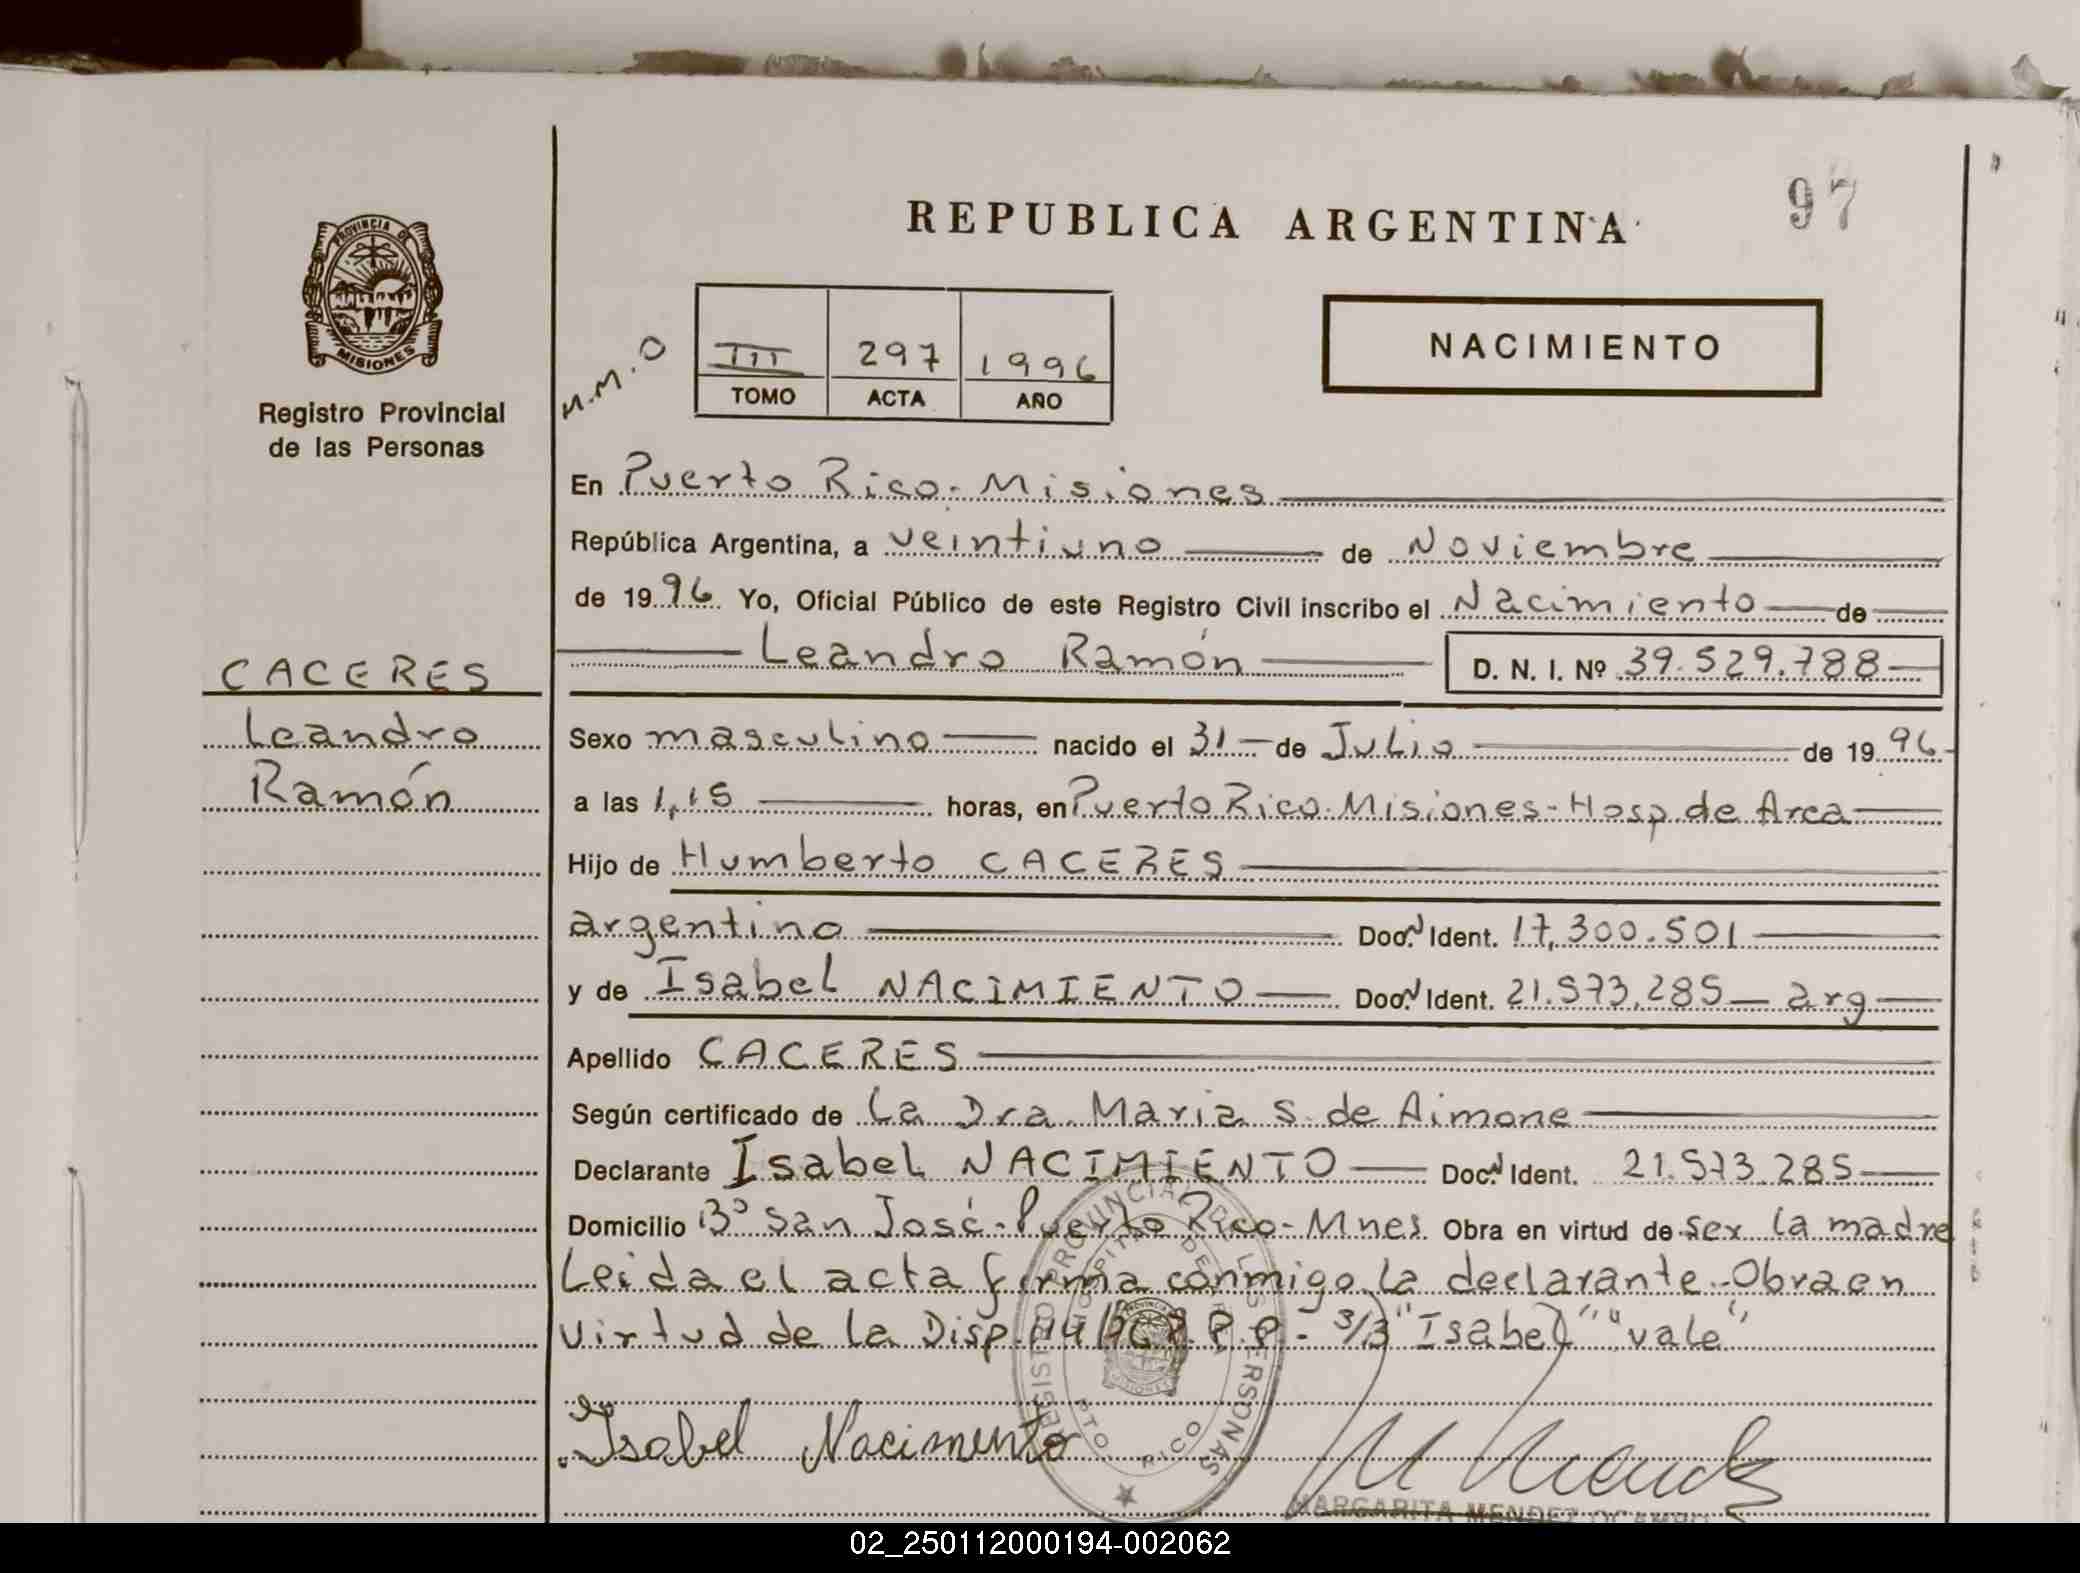 REPUBLICA ARGENTINA
97
PROVINCIA DE
MISIONES
Registro Provincial
de las Personas
N.M.O
III 297 1996
TOMO ACTA AÑO
NACIMIENTO
En Puerto Rico - Misiones
República Argentina, a veintiuno de Noviembre
de 1996 Yo, Oficial Público de este Registro Civil inscribo el Nacimiento de
Leandro Ramón D. N. I. Nº 39.529.788
CACERES
Leandro
Ramón
Sexo masculino nacido el 31 de Julio de 1996
a las 1,15 horas, en Puerto Rico. Misiones - Hosp. de Area
Hijo de Humberto CACERES
argentino Doc. Ident. 17,300.501
y de Isabel NACIMIENTO Doc. Ident. 21.573.285 arg
Apellido CACERES
Según certificado de La Dra. Maria S. de Aimone
Declarante Isabel NACIMIENTO Doc. Ident. 21.573.285
Domicilio Bº San José - Puerto Rico - Mnes. Obra en virtud de ser la madre
Leida el acta firma conmigo la declarante. Obra en
virtud de la Disp. R.P.P. - 3/3 "Isabel" "vale"
REGISTRO PROVINCIAL DE LAS PERSONAS
HOSPITAL DE AREA
PTO. RICO
Isabel Nacimento
MARGARITA MENDEZ OCAMPO
02_250112000194-002062